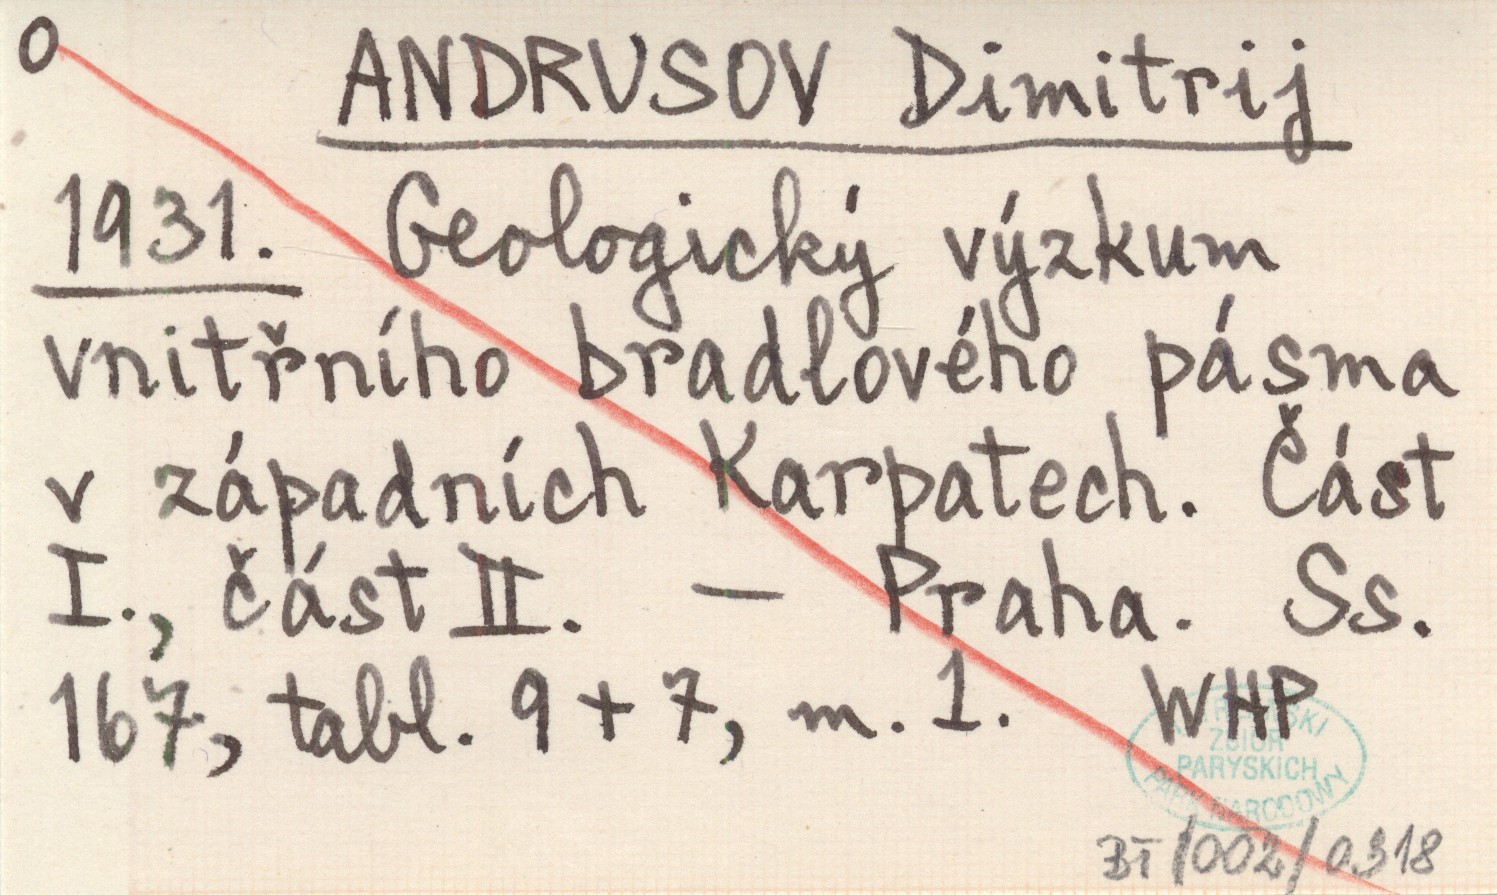 O ANDRUSOV Dimitrij
1931. Geologický výzkum
vnitřního bradlového pásma
v západních Karpatech. Část
I., část II. — Praha. Ss.
167, tabl. 9 + 7, m. 1. WHP
ZBIÓR
PARYSKICH
PARK NARODOWY
BT/002/0318